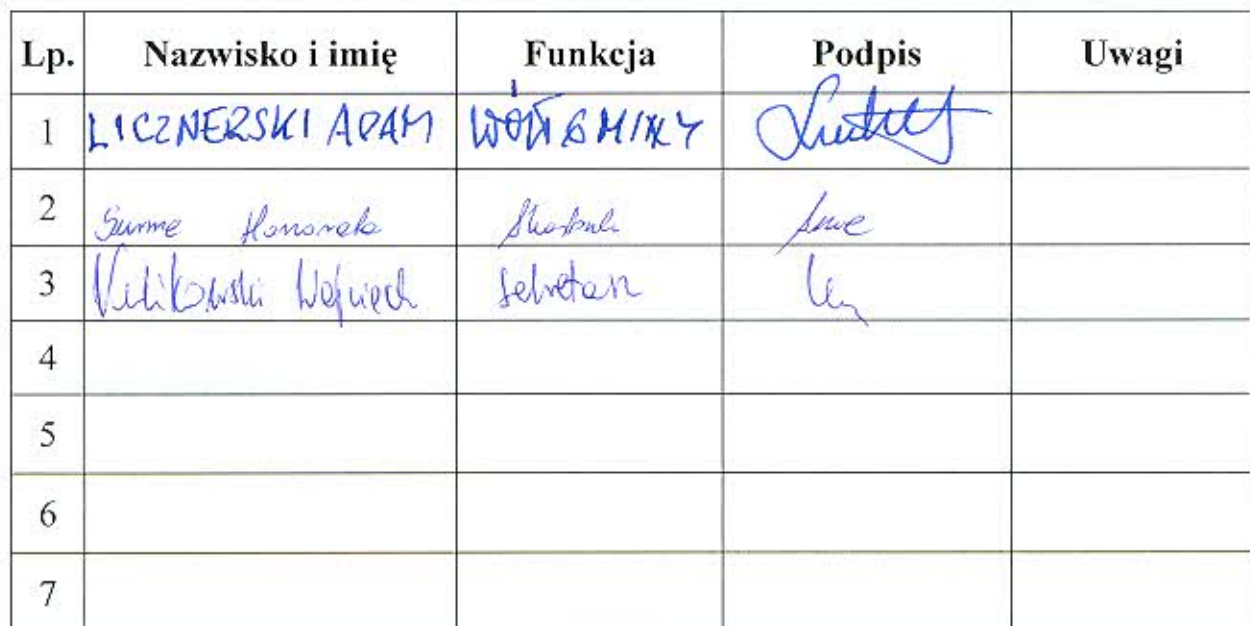 Lp. Nazwisko i imię Funkcja Podpis Uwagi
1 LICZNERSKI ADAM WÓJT GMINY
2 Honorata Skarbnik
3 Wojciech sekretarz
4
5
6
7